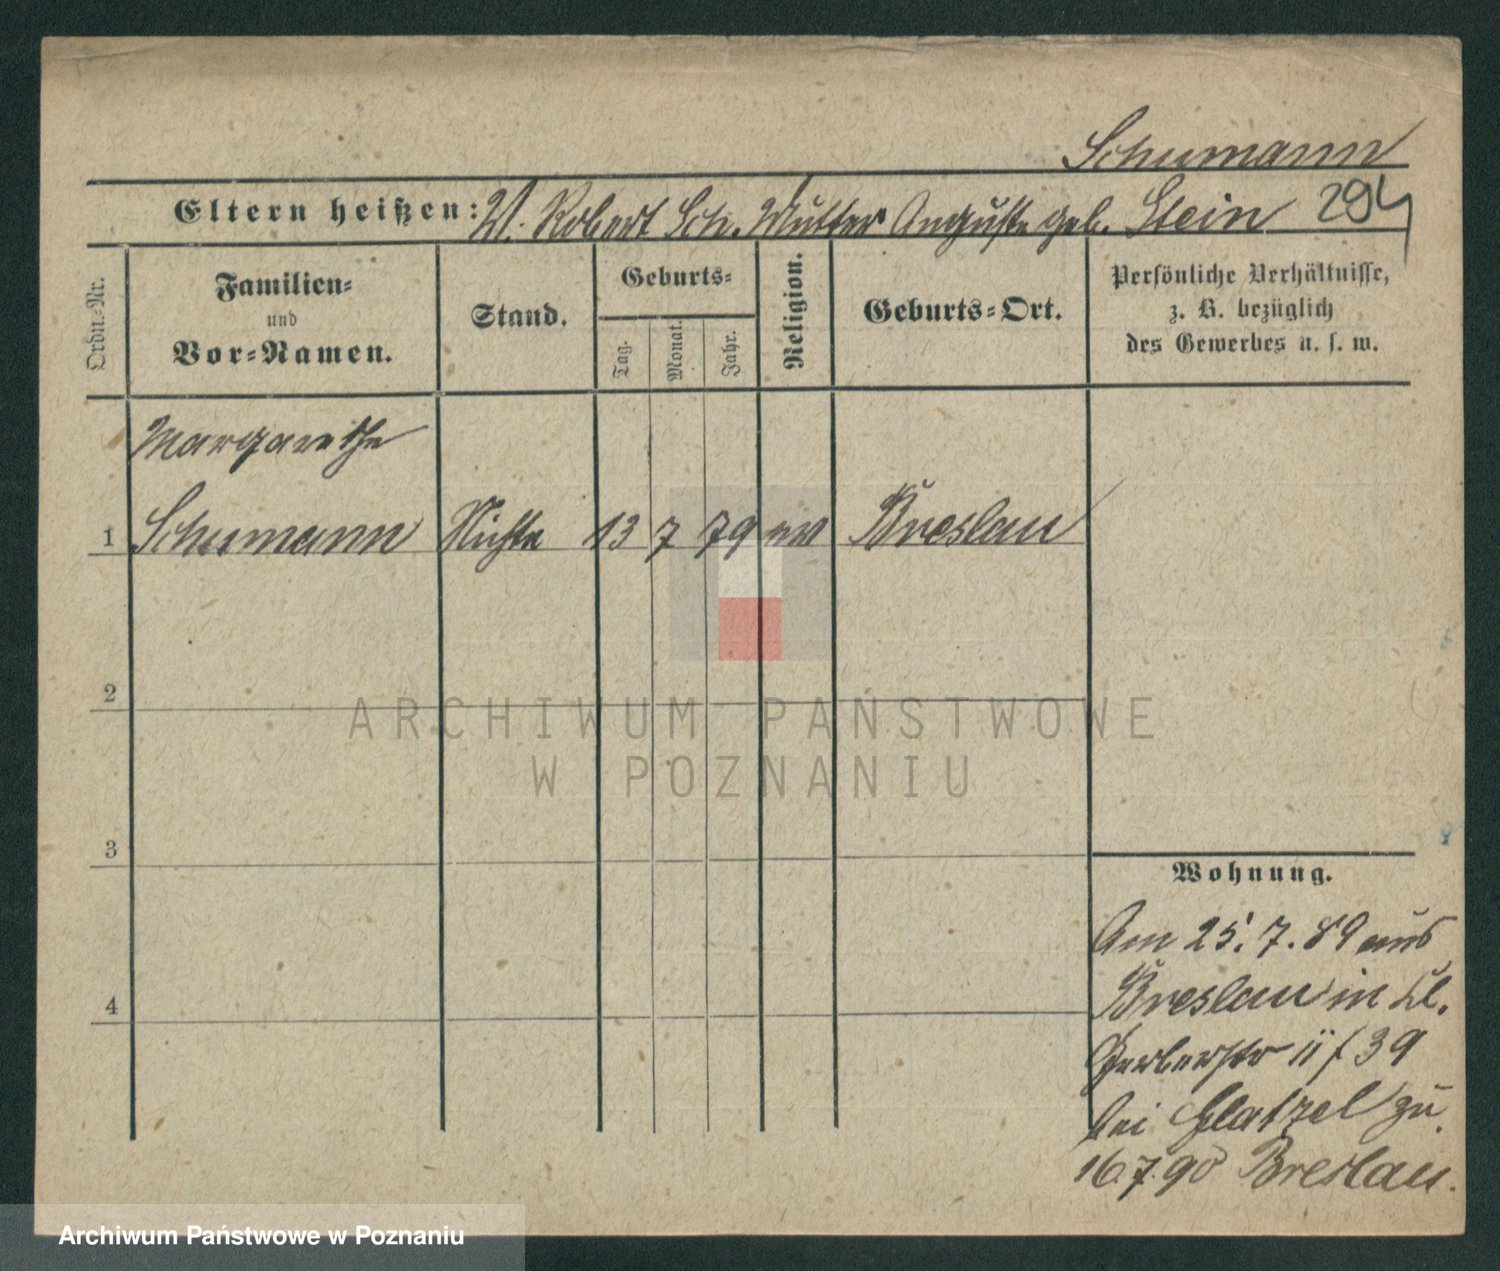 Schumann
Eltern heißen: V. Robert Sch. Mutter Auguste geb. Stein 294
Ordn.-Nr.
Familien-
und
Vor-Namen.
Stand.
Geburts-
Tag.
Monat.
Jahr.
Religion.
Geburts-Ort.
Persönliche Verhältnisse,
z. B. bezüglich
des Gewerbes u. s. w.
Margarethe
1 Schumann Nichte 13 7 79 ev Breslau
2
3
4
Wohnung.
Am 25. 7. 89 aus
Breslau in kl.
Gerberstr 11 / 39
bei Glatzel zu.
16.7.90 Breslau.
ARCHIWUM PAŃSTWOWE
W POZNANIU
Archiwum Państwowe w Poznaniu